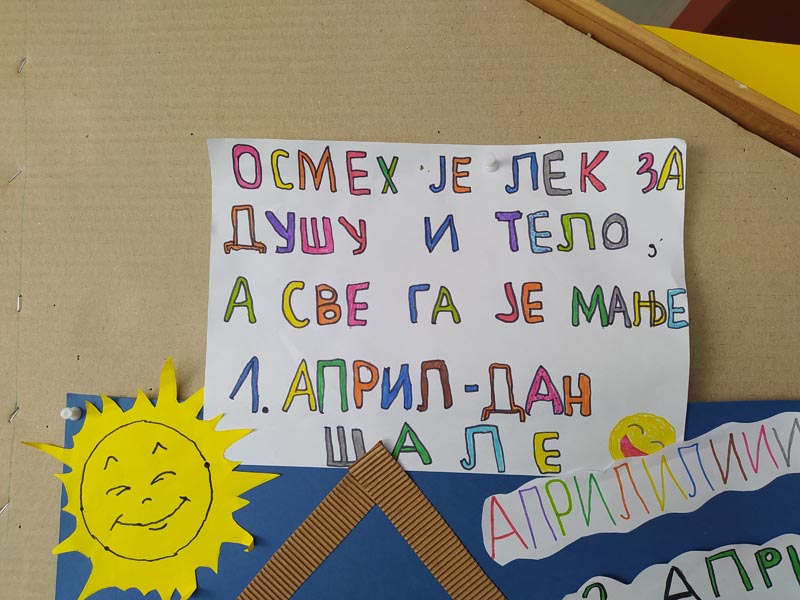 ОСМЕХ ЈЕ ЛЕК ЗА
ДУШУ И ТЕЛО,
А СВЕ ГА ЈЕ МАЊЕ
1. АПРИЛ-ДАН
ШАЛЕ
АПРИЛИЛИИИ